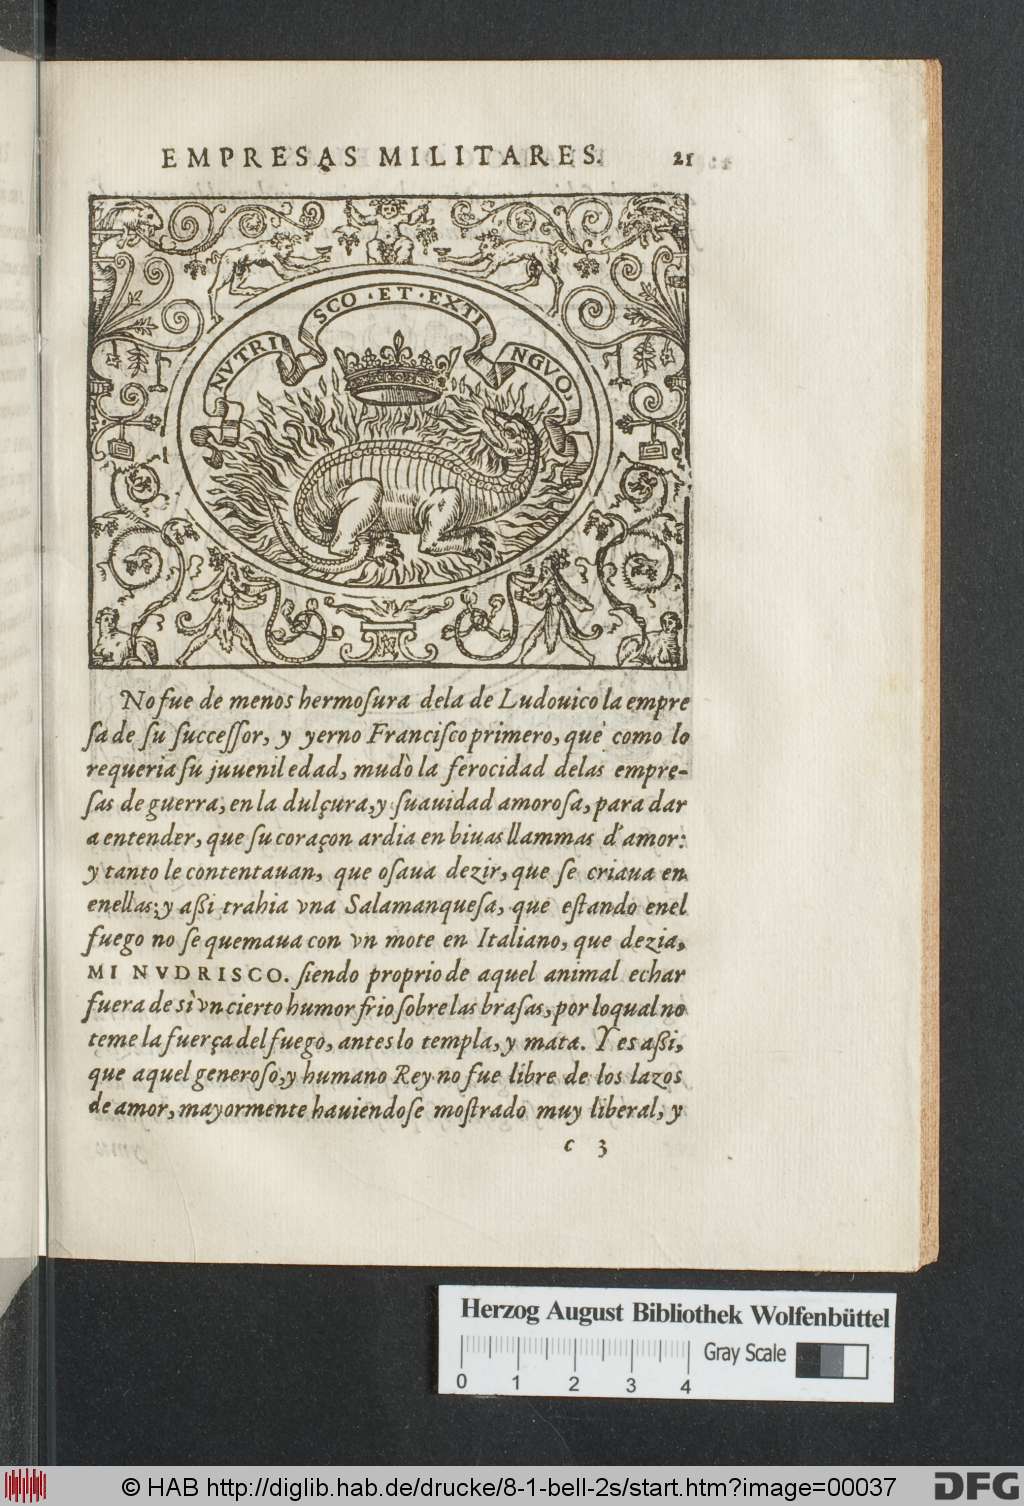 EMPRESAS MILITARES. 21
NVTRI SCO · ET · EXTI NGVO,
No fue de menos hermoſura dela de Ludouico la empre
ſa de ſu ſucceſſor, y yerno Franciſco primero, què como lo
requeria ſu juuenil edad, mudò la ferocidad delas empre-
ſas de guerra, en la dulçura, y ſuauidad amoroſa, para dar
a entender, que ſu coraçon ardia en biuas llammas d'amor:
y tanto le contentauan, que oſaua dezir, que ſe criaua en
enellas; y aßi trahia vna Salamanqueſa, que eſtando enel
fuego no ſe quemaua con vn mote en Italiano, que dezia,
MI NVDRISCO. ſiendo proprio de aquel animal echar
fuera de sì vn cierto humor frio ſobre las braſas, por loqual no
teme la fuerça del fuego, antes lo templa, y mata. Y es aßi,
que aquel generoſo, y humano Rey no fue libre de los lazos
de amor, mayormente hauiendoſe moſtrado muy liberal, y
c 3
Herzog August Bibliothek Wolfenbüttel
0 1 2 3 4
Gray Scale
© HAB http://diglib.hab.de/drucke/8-1-bell-2s/start.htm?image=00037
DFG